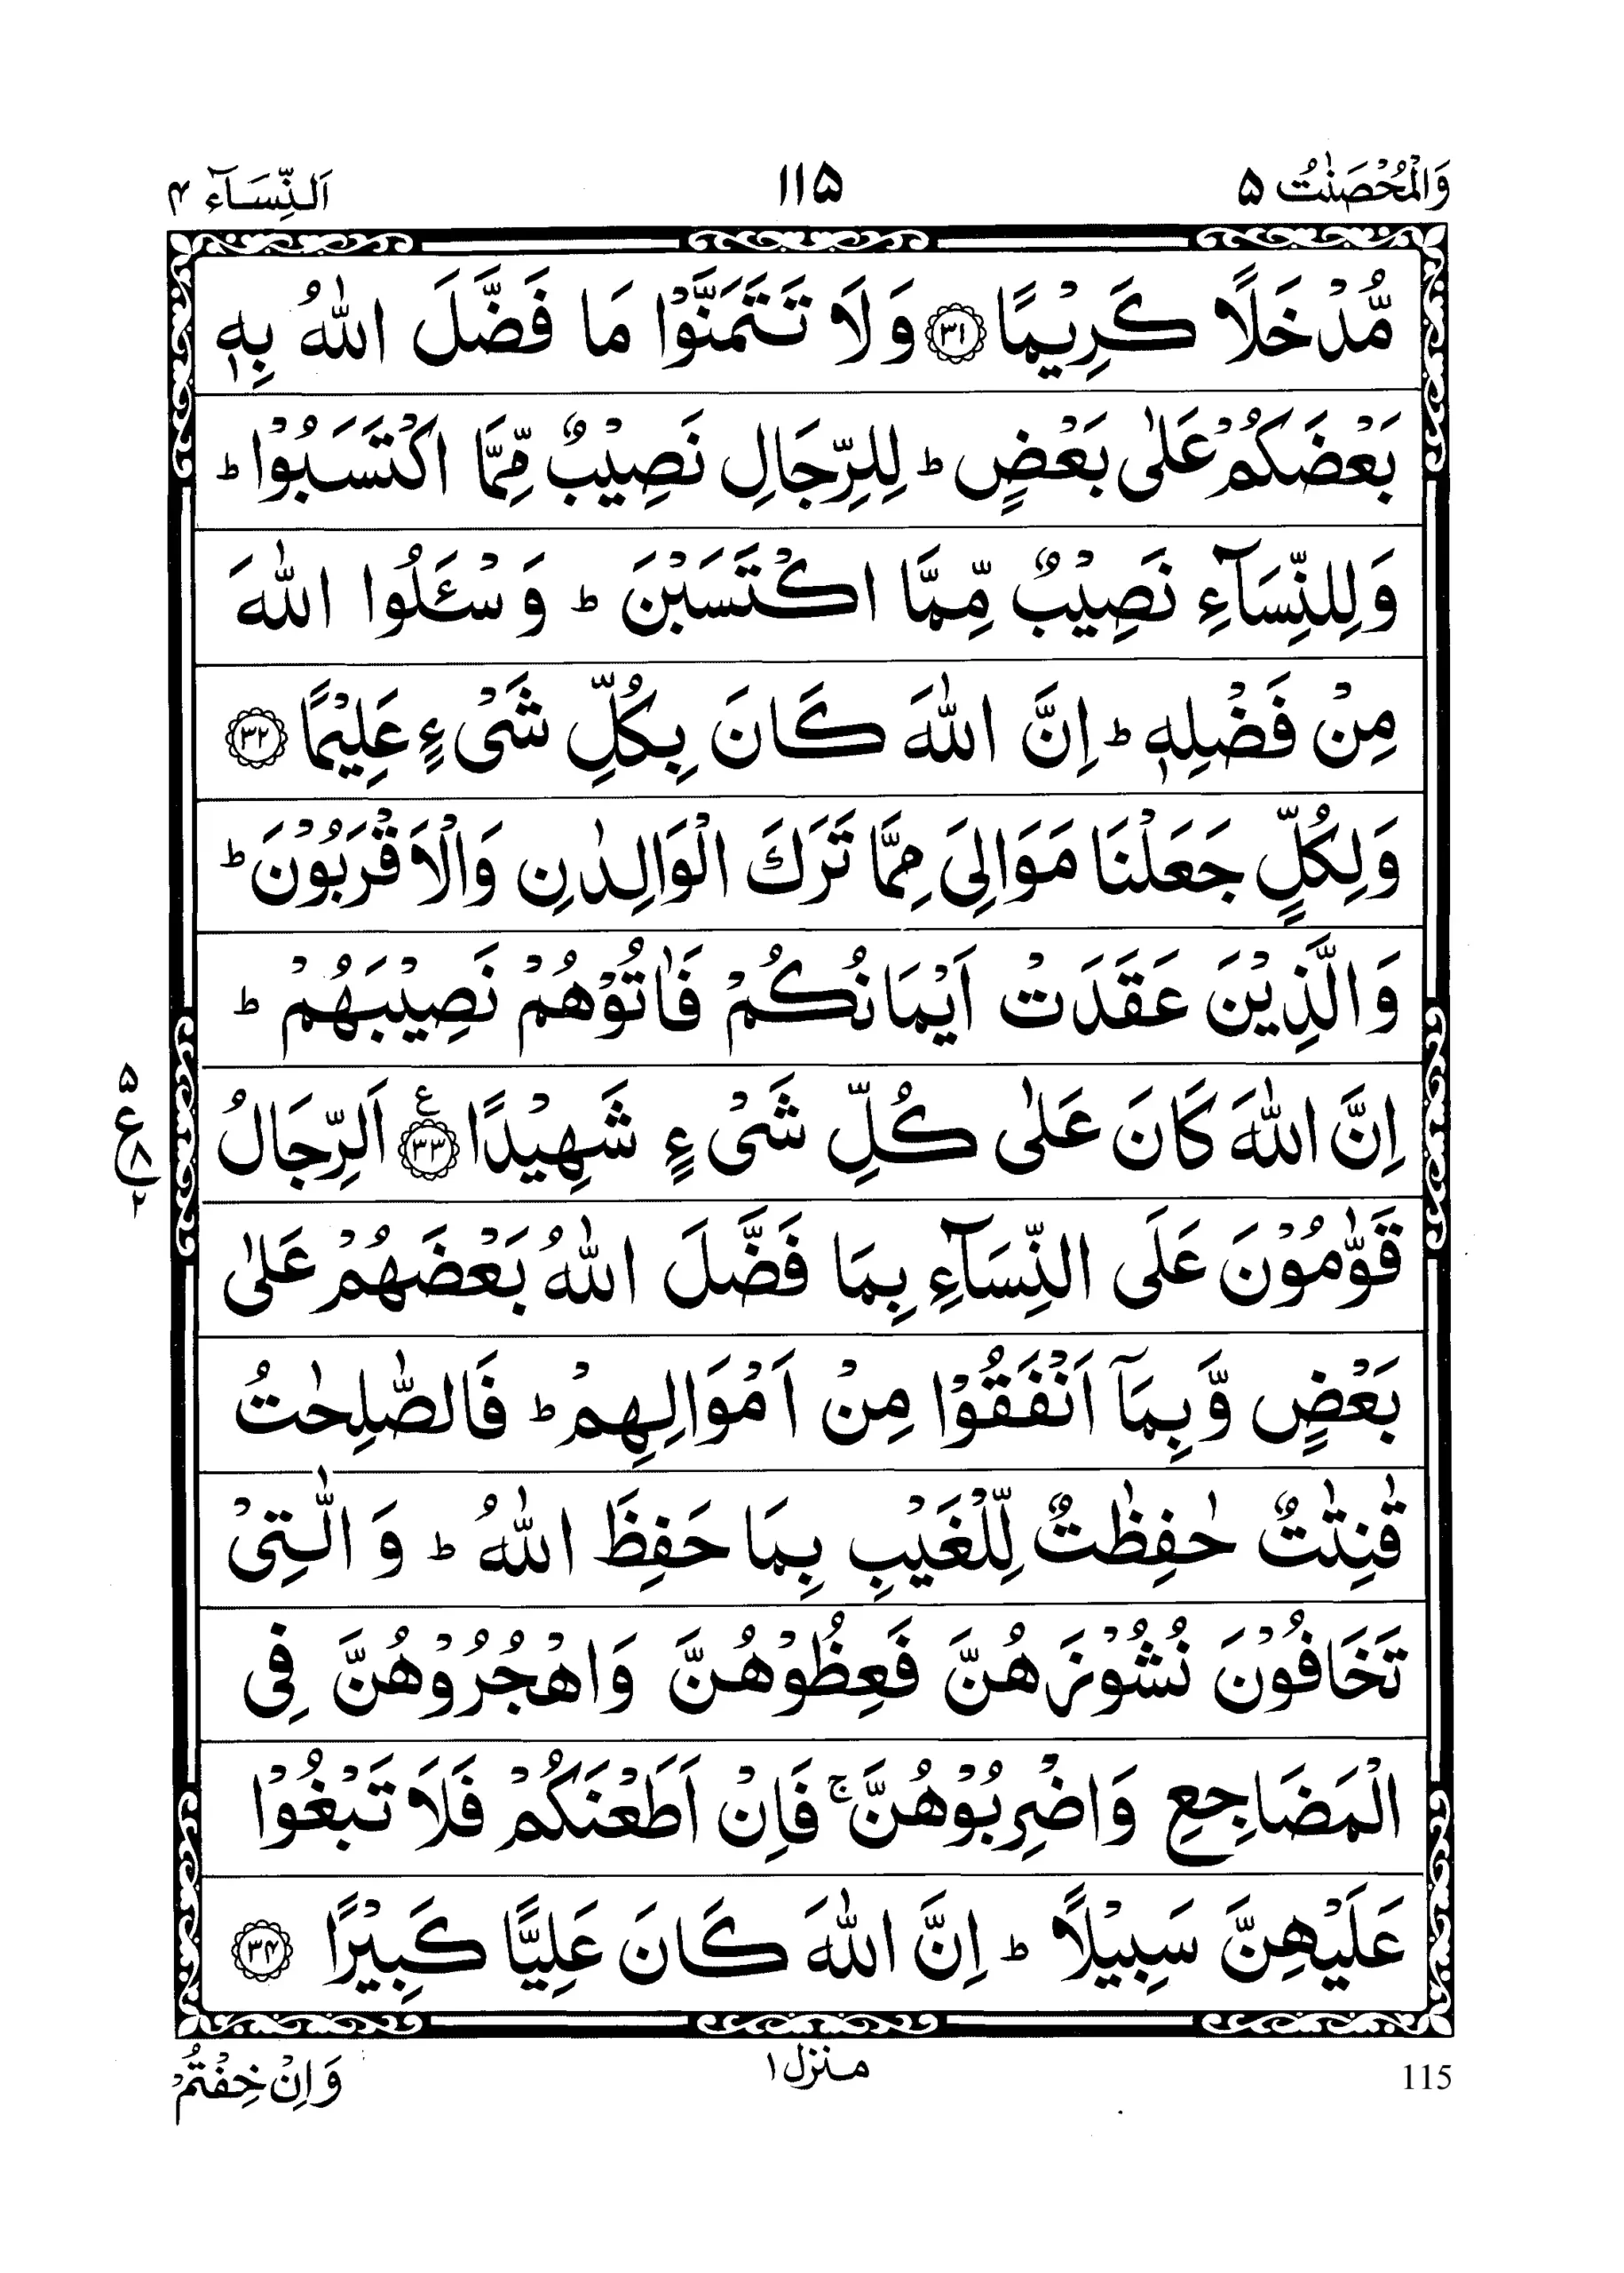 وَالْمُحْصَنٰتُ ۵
۱۱۵
اَلنِّسَآء ۴
مُّدْخَلًا كَرِيْمًا ﴿۳۱﴾ وَلَا تَتَمَنَّوْا مَا فَضَّلَ اللّٰهُ بِهٖ
بَعْضَكُمْ عَلٰى بَعْضٍ ؕ لِلرِّجَالِ نَصِيْبٌ مِّمَّا اكْتَسَبُوْا ؕ
وَلِلنِّسَآءِ نَصِيْبٌ مِّمَّا اكْتَسَبْنَ ؕ وَسْـَٔلُوا اللّٰهَ
مِنْ فَضْلِهٖ ؕ اِنَّ اللّٰهَ كَانَ بِكُلِّ شَىْءٍ عَلِيْمًا ﴿۳۲﴾
وَلِكُلٍّ جَعَلْنَا مَوَالِىَ مِمَّا تَرَكَ الْوَالِدٰنِ وَالْاَقْرَبُوْنَ ؕ
وَالَّذِيْنَ عَقَدَتْ اَيْمَانُكُمْ فَاٰتُوْهُمْ نَصِيْبَهُمْ ؕ
اِنَّ اللّٰهَ كَانَ عَلٰى كُلِّ شَىْءٍ شَهِيْدًا ﴿۳۳﴾ ع اَلرِّجَالُ
۵
ع
۸
۲
قَوّٰمُوْنَ عَلَى النِّسَآءِ بِمَا فَضَّلَ اللّٰهُ بَعْضَهُمْ عَلٰى
بَعْضٍ وَّبِمَآ اَنْفَقُوْا مِنْ اَمْوَالِهِمْ ؕ فَالصّٰلِحٰتُ
قٰنِتٰتٌ حٰفِظٰتٌ لِّلْغَيْبِ بِمَا حَفِظَ اللّٰهُ ؕ وَ الّٰتِىْ
تَخَافُوْنَ نُشُوْزَهُنَّ فَعِظُوْهُنَّ وَاهْجُرُوْهُنَّ فِى
الْمَضَاجِعِ وَاضْرِبُوْهُنَّ ۚ فَاِنْ اَطَعْنَكُمْ فَلَا تَبْغُوْا
عَلَيْهِنَّ سَبِيْلًا ؕ اِنَّ اللّٰهَ كَانَ عَلِيًّا كَبِيْرًا ﴿۳۴﴾
115
منزل ۱
وَاِنْ خِفْتُمْ